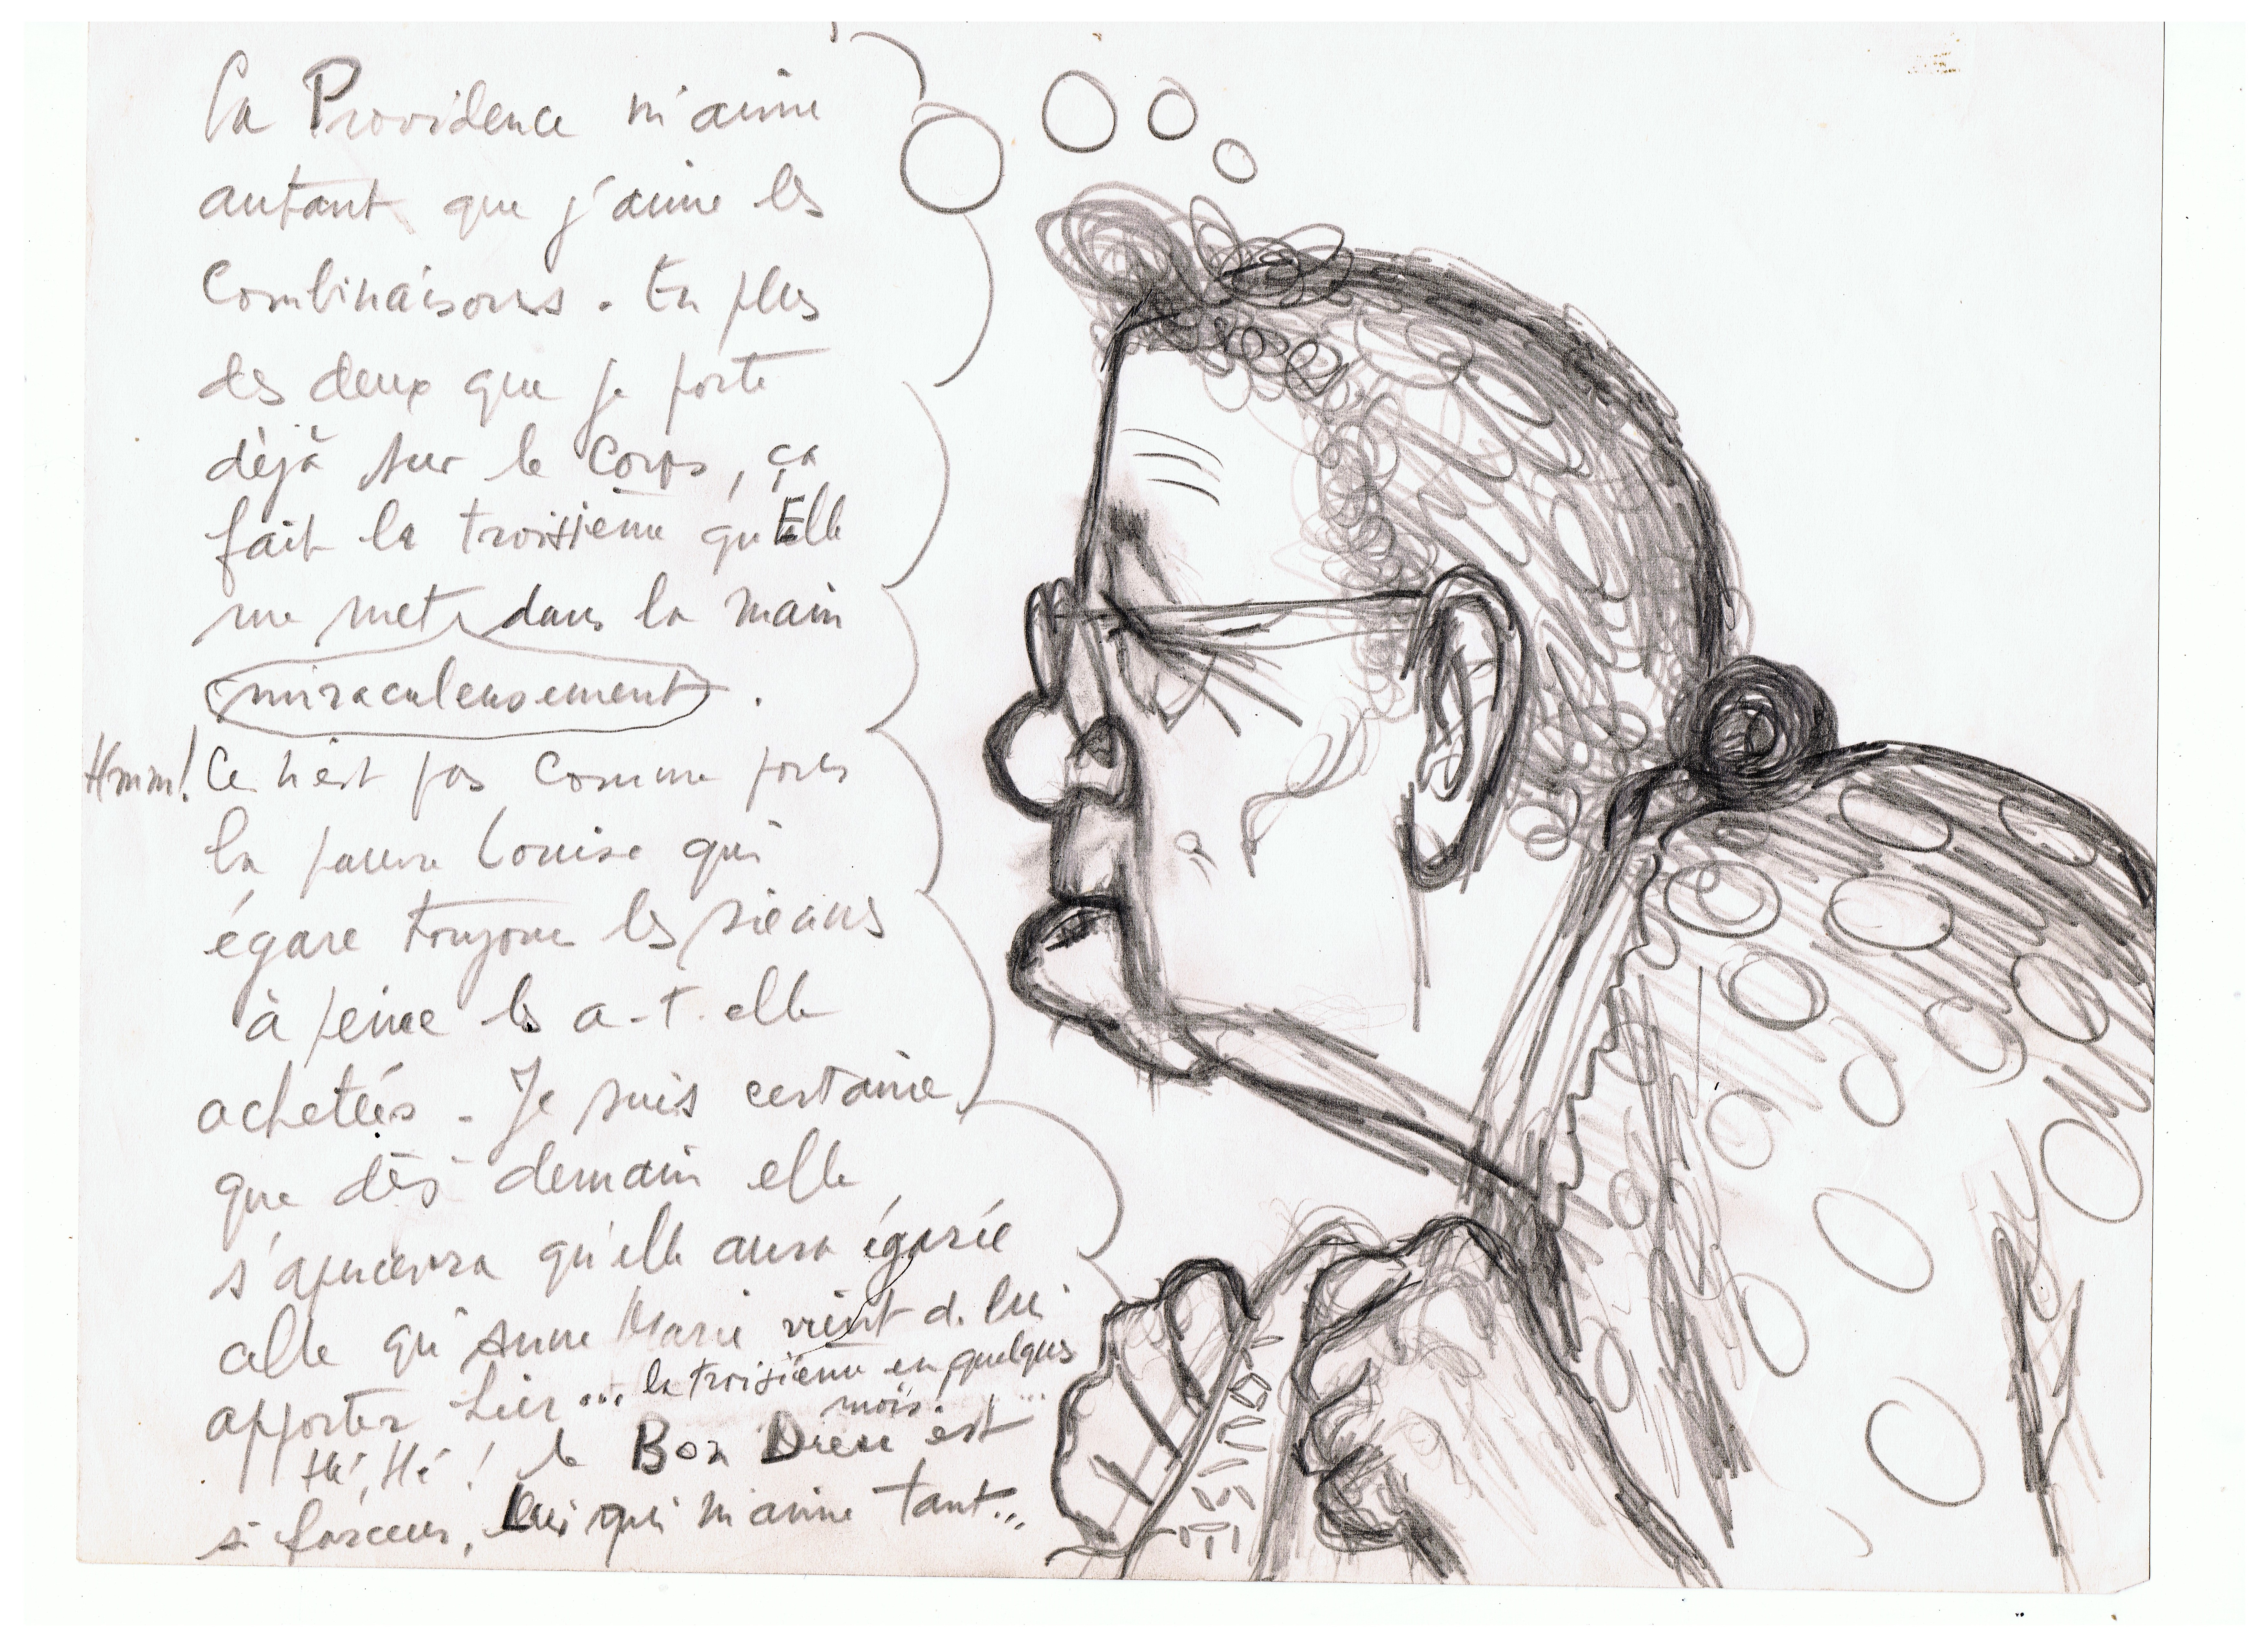 La Providence m'aime
autant que j'aime les
Combinaisons. En plus
des deux que je porte
déjà sur le corps, ça
fait la troisième qu'Elle
me met dans la main
miraculeusement.
Hmm! Ce n'est pas comme pour
la pauvre Louise qui
égare toujours les siennes
à peine les a-t-elle
achetées. Je suis certaine
que dès demain elle
s'apercevra qu'elle aura égarée
celle qu'Anne Marie vient de lui
apporter hier... la troisième en quelques
mois...
Hé, Hé! le Bon Dieu est
si farceur, Lui qui m'aime tant...